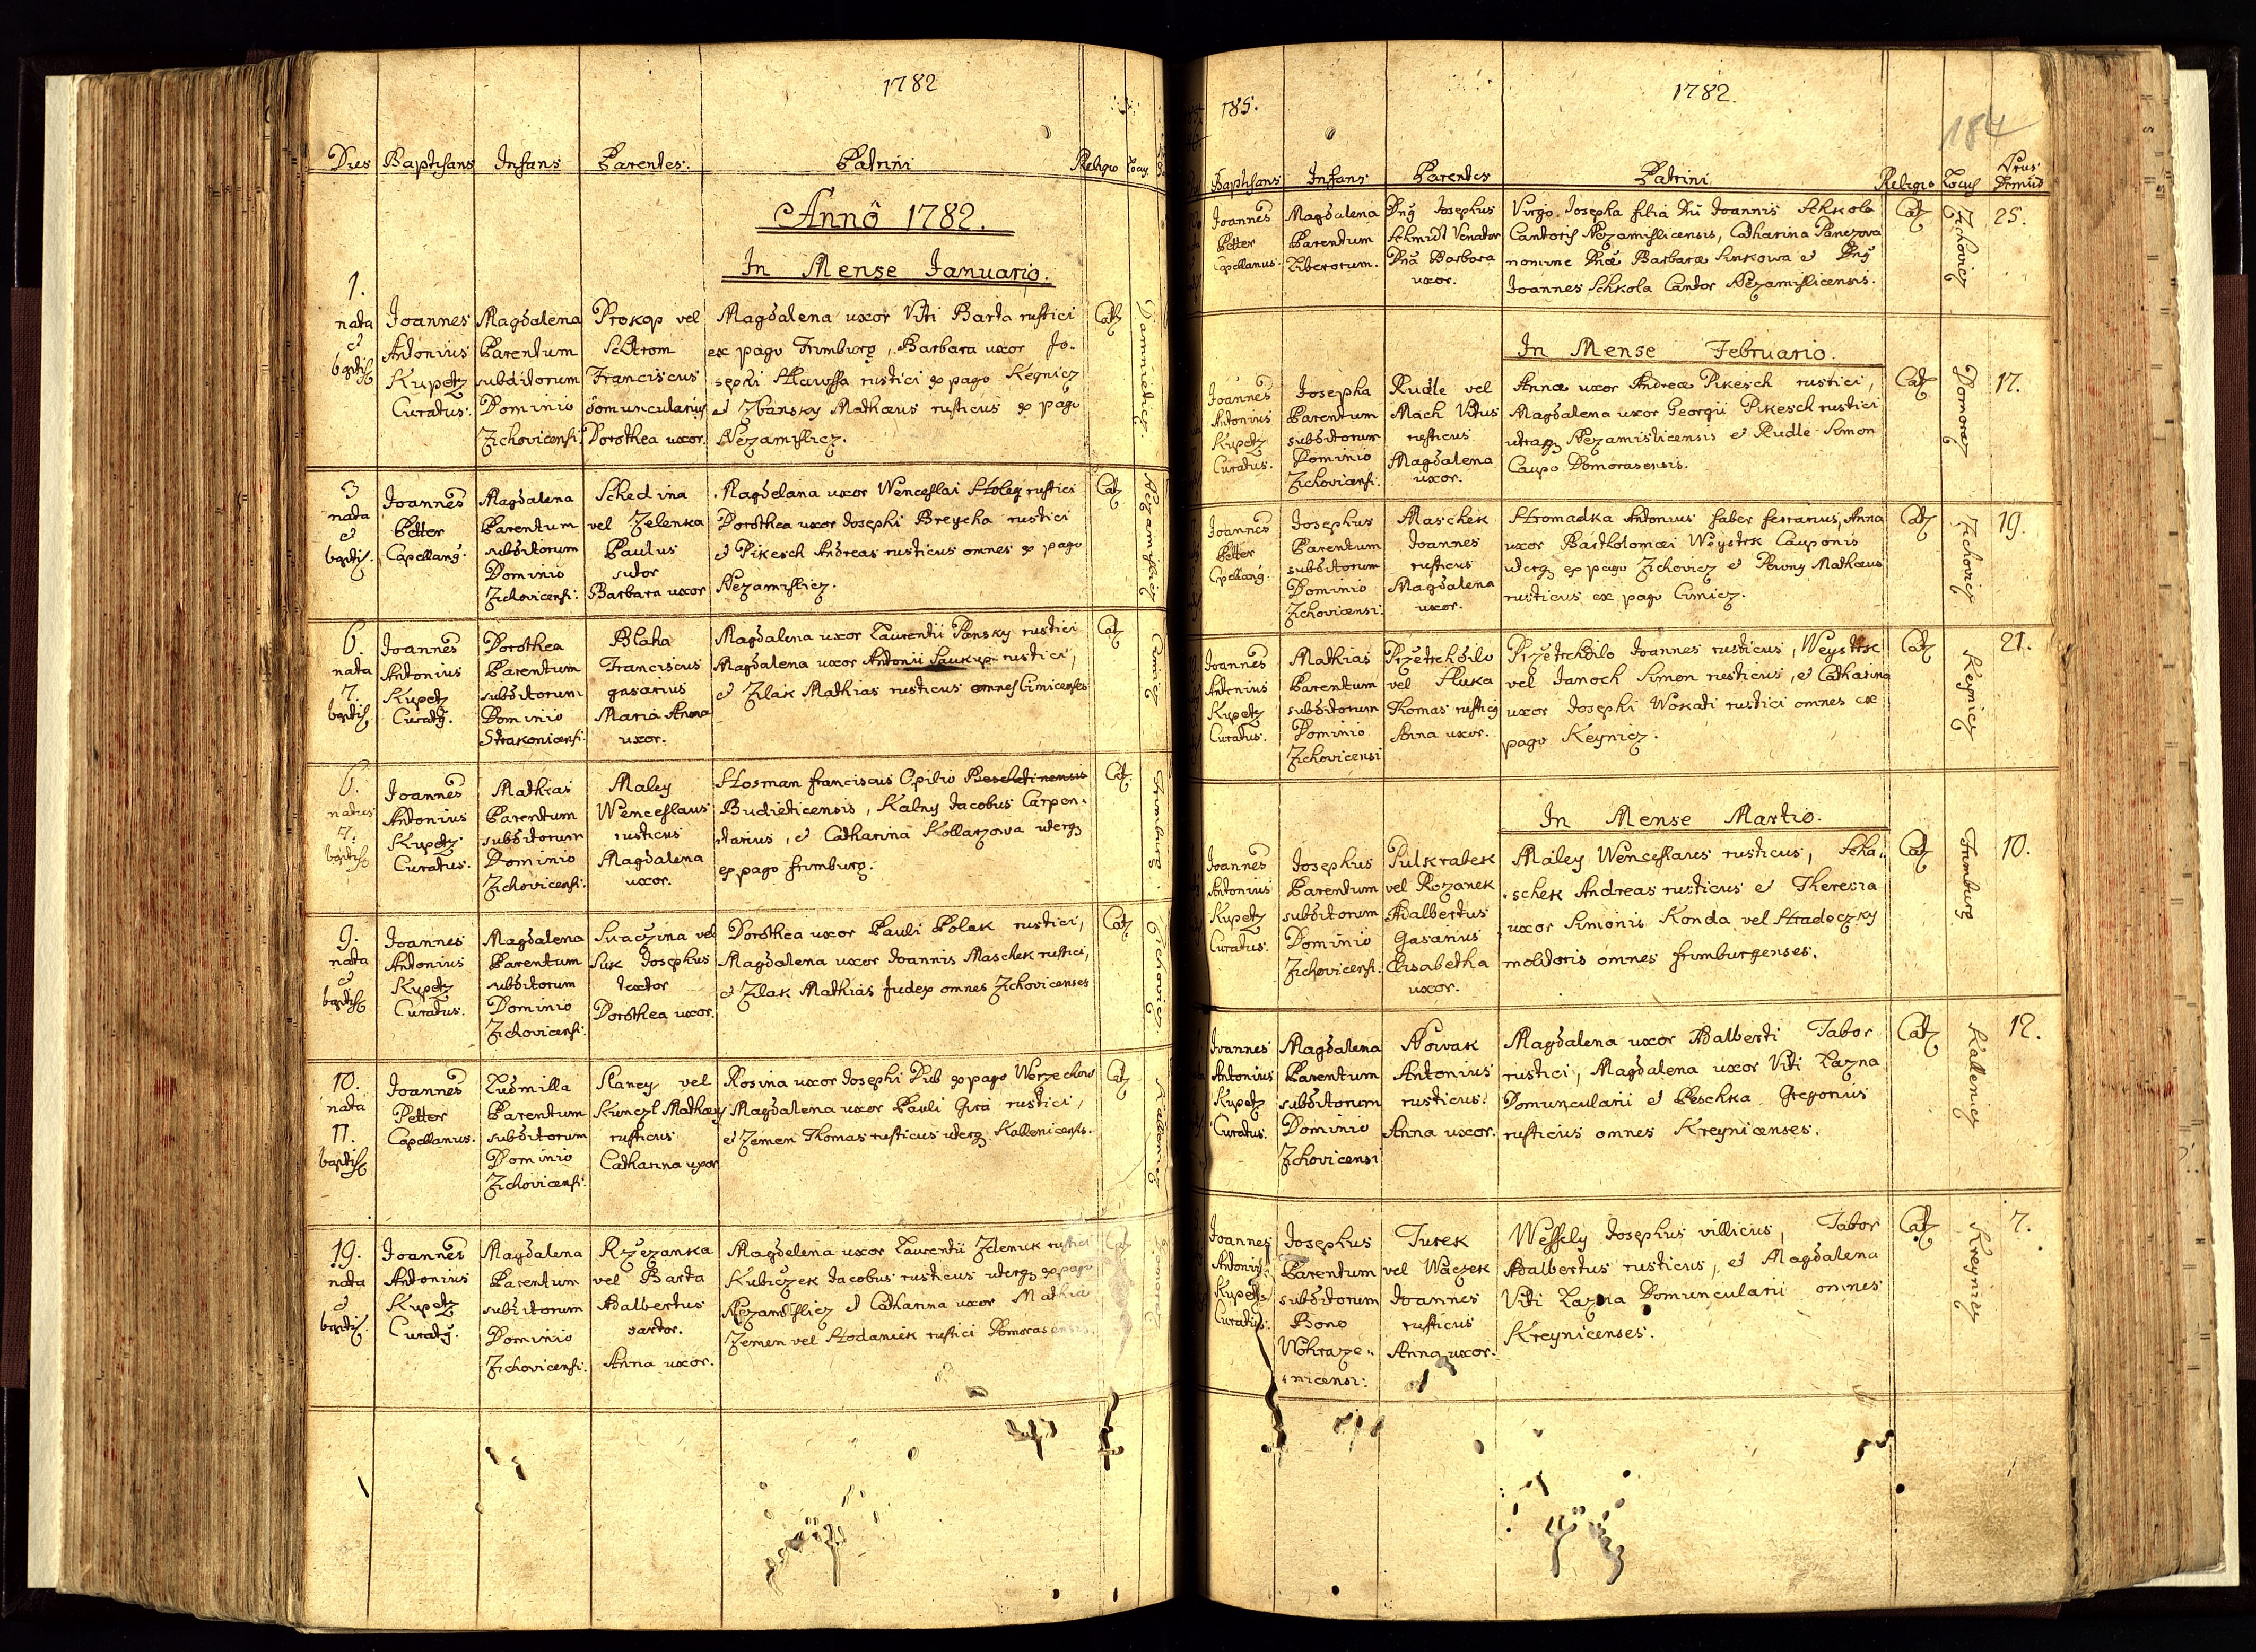 1782
Dies Baptisans Infans Parentes. Patrini Religio Locus
Annô 1782.
In Mense Januario.
1.
nata
et
baptis
Joannes
Antonius
Kupetz
Curatus.
Magdalena
Parentum
subditorum
Dominio
Zichovicensi.
Prokop vel
Franciscus
domuncularius
Dorothea uxor.
Magdalena uxor Viti Barta rustici
ex pago Frimburg, Barbara uxor Jo-
sephi rustici ex pago Kegnicz
et Zbansky Mathæus rusticus ex pago
Nezamislicz.
Cath
3
nata
et
baptis.
Joannes
Petter
Capellang.
Magdalena
Parentum
subditorum
Dominio
Zichovicensi:
Schedina
vel Zelenka
Paulus
sutor
Barbara uxor
Magdelana uxor Wenceslai rustici
Dorothea uxor Josephi Breycha rustici
et Pikesch Andreas rusticus omnes ex pago
Nezamislicz.
Cath
Nezamislicz
6.
nata
7.
baptis
Joannes
Antonius
Kupetz
Curatg.
Dorothea
Parentum
subditorum
Dominio
Strakonicensi:
Blaha
Franciscus
gasarius
Maria Anna
uxor.
Magdalena uxor Laurentii Pansky rustici
Magdalena uxor Antonii Saukup rustici,
et Zlak Mathias rusticus omnes Cimicenses
Cath
Cimicz
6.
natus
7.
baptis
Joannes
Antonius
Kupetz
Curatus.
Mathias
Parentum
subditorum
Dominio
Zichovicensi:
Maley
Wenceslaus
rusticus
Magdalena
uxor.
Hosman Franciscus Opilio Beschetinensis
Budieticensis, Kalny Jacobus Carpen-
tarius, et Catharina Kollarzowa uterq
ex pago Frimburg.
Cath
Frimburg.
9.
nata
et
baptis
Joannes
Antonius
Kupetz
Curatus.
Magdalena
Parentum
subditorum
Dominio
Zichovicensi:
Swaczina vel
Suk Josephus
textor
Dorothea uxor.
Dorothea uxor Pauli Polak rustici,
Magdalena uxor Joannis Maschek rustici,
et Zlak Mathias Judex omnes Zichovicenses
Cath
Zichovicz
10.
nata
11.
baptis
Joannes
Petter
Capellanus.
Ludmilla
Parentum
subditorum
Dominio
Zichovicensi:
Slancy vel
Kunczl Mathæus
rusticus
Catharina uxor
Rosina uxor Josephi Dub ex pago Worzechow
Magdalena uxor Pauli Gira rustici,
et Zemen Thomas rusticus uterq Kallenicensis.
Cath
Kallenicz
19.
nata
et
baptis.
Joannes
Antonius
Kupetz
Curatg.
Magdalena
Parentum
subditorum
Dominio
Zichovicensi:
Rzezanka
vel Barta
Adalbertus
sartor.
Anna uxor.
Magdelena uxor Laurentii Zdenick rustici
Kubiczek Jacobus rusticus uterq ex pago
Nezamislicz et Catharina uxor Mathia
Zemen vel Hodaniek rustici Domorasensis.
185.
1782.
184
Baptisans Infans Parentes Patrini Religio Locus
Joannes
Petter
Capellanus.
Magdalena
Parentum
Liberorum.
Dng Josephus
Schmidt Venator
Dnâ Barbara
uxor.
Virgo Josepha filia Dni Joannis Schkola
Cantoris Nezamislicensis, Catharina Panczova
nomine Dnæ Barbaræ Sinkowa et Dng
Joannes Schkola Cantor Nezamislicensis.
Cath
Zichovicz
25.
In Mense Februario.
Joannes
Antonius
Kupetz
Curatus.
Josepha
Parentum
subditorum
Dominio
Zichovicensi.
Rudle vel
Mach Vitus
rusticus
Magdalena
uxor.
Anna uxor Andreæ Pikesch rustici,
Magdalena uxor Georgii Pikesch rustici
utraq Nezamislicensis et Rudle Simon
Caupo Domorasensis.
Cath
Domoraz
17.
Joannes
Petter
Capellang.
Josephus
Parentum
subditorum
Dominio
Zichovicensi:
Maschek
Joannes
rusticus
Magdalena
uxor.
Hromadka Antonius faber ferrarius, Anna
uxor Bartholomæi Weystrk Cauponis
uterq ex pago Zichovicz et Perwny Mathæus
rusticus ex pago Cimicz.
Cath
Zichovicz
19.
Joannes
Antonius
Kupetz
Curatus.
Mathias
Parentum
subditorum
Dominio
Zichovicensi
Przetrhdilo
vel Sluka
Thomas rusticg
Anna uxor.
Przetrhdilo Joannes rusticus, Weystrk
vel Janoch Simon rusticus, et Catharina
uxor Josephi Wokati rustici omnes ex
pago Keynicz.
Cath
Keynicz
21.
In Mense Martio.
Joannes
Antonius
Kupetz
Curatus.
Josephus
Parentum
subditorum
Dominio
Zichovicensi.
Pulkrabek
vel Rozanek
Adalbertus
Gasarius
Elisabetha
uxor.
Maley Wenceslaus rusticus, Scha-
schek Andreas rusticus et Theresia
uxor Simonis Konda vel Hradeczky
molitoris omnes frimburgenses.
Cath
Frimburg
10.
Joannes
Antonius
Kupetz
Curatus.
Magdalena
Parentum
subditorum
Dominio
Zichovicensi
Nowak
Antonius
rusticus.
Anna uxor.
Magdalena uxor Adalberti Tabor
rustici, Magdalena uxor Viti Lazna
Domuncularii et Peschka Gregorius
rusticus omnes Kreynicenses.
Cath
Kallenicz
12.
Joannes
Antonius
Kupetz
Curatus.
Josephus
Parentum
subditorum
Bono
Wohraze-
nicensi:
Turek
vel Waczek
Joannes
rusticus
Anna uxor.
Wessely Josephus villicus, Tabor
Adalbertus rusticus, et Magdalena
Viti Lazna Domuncularii omnes
Kreynicenses.
Cath
Kreynicz
7.